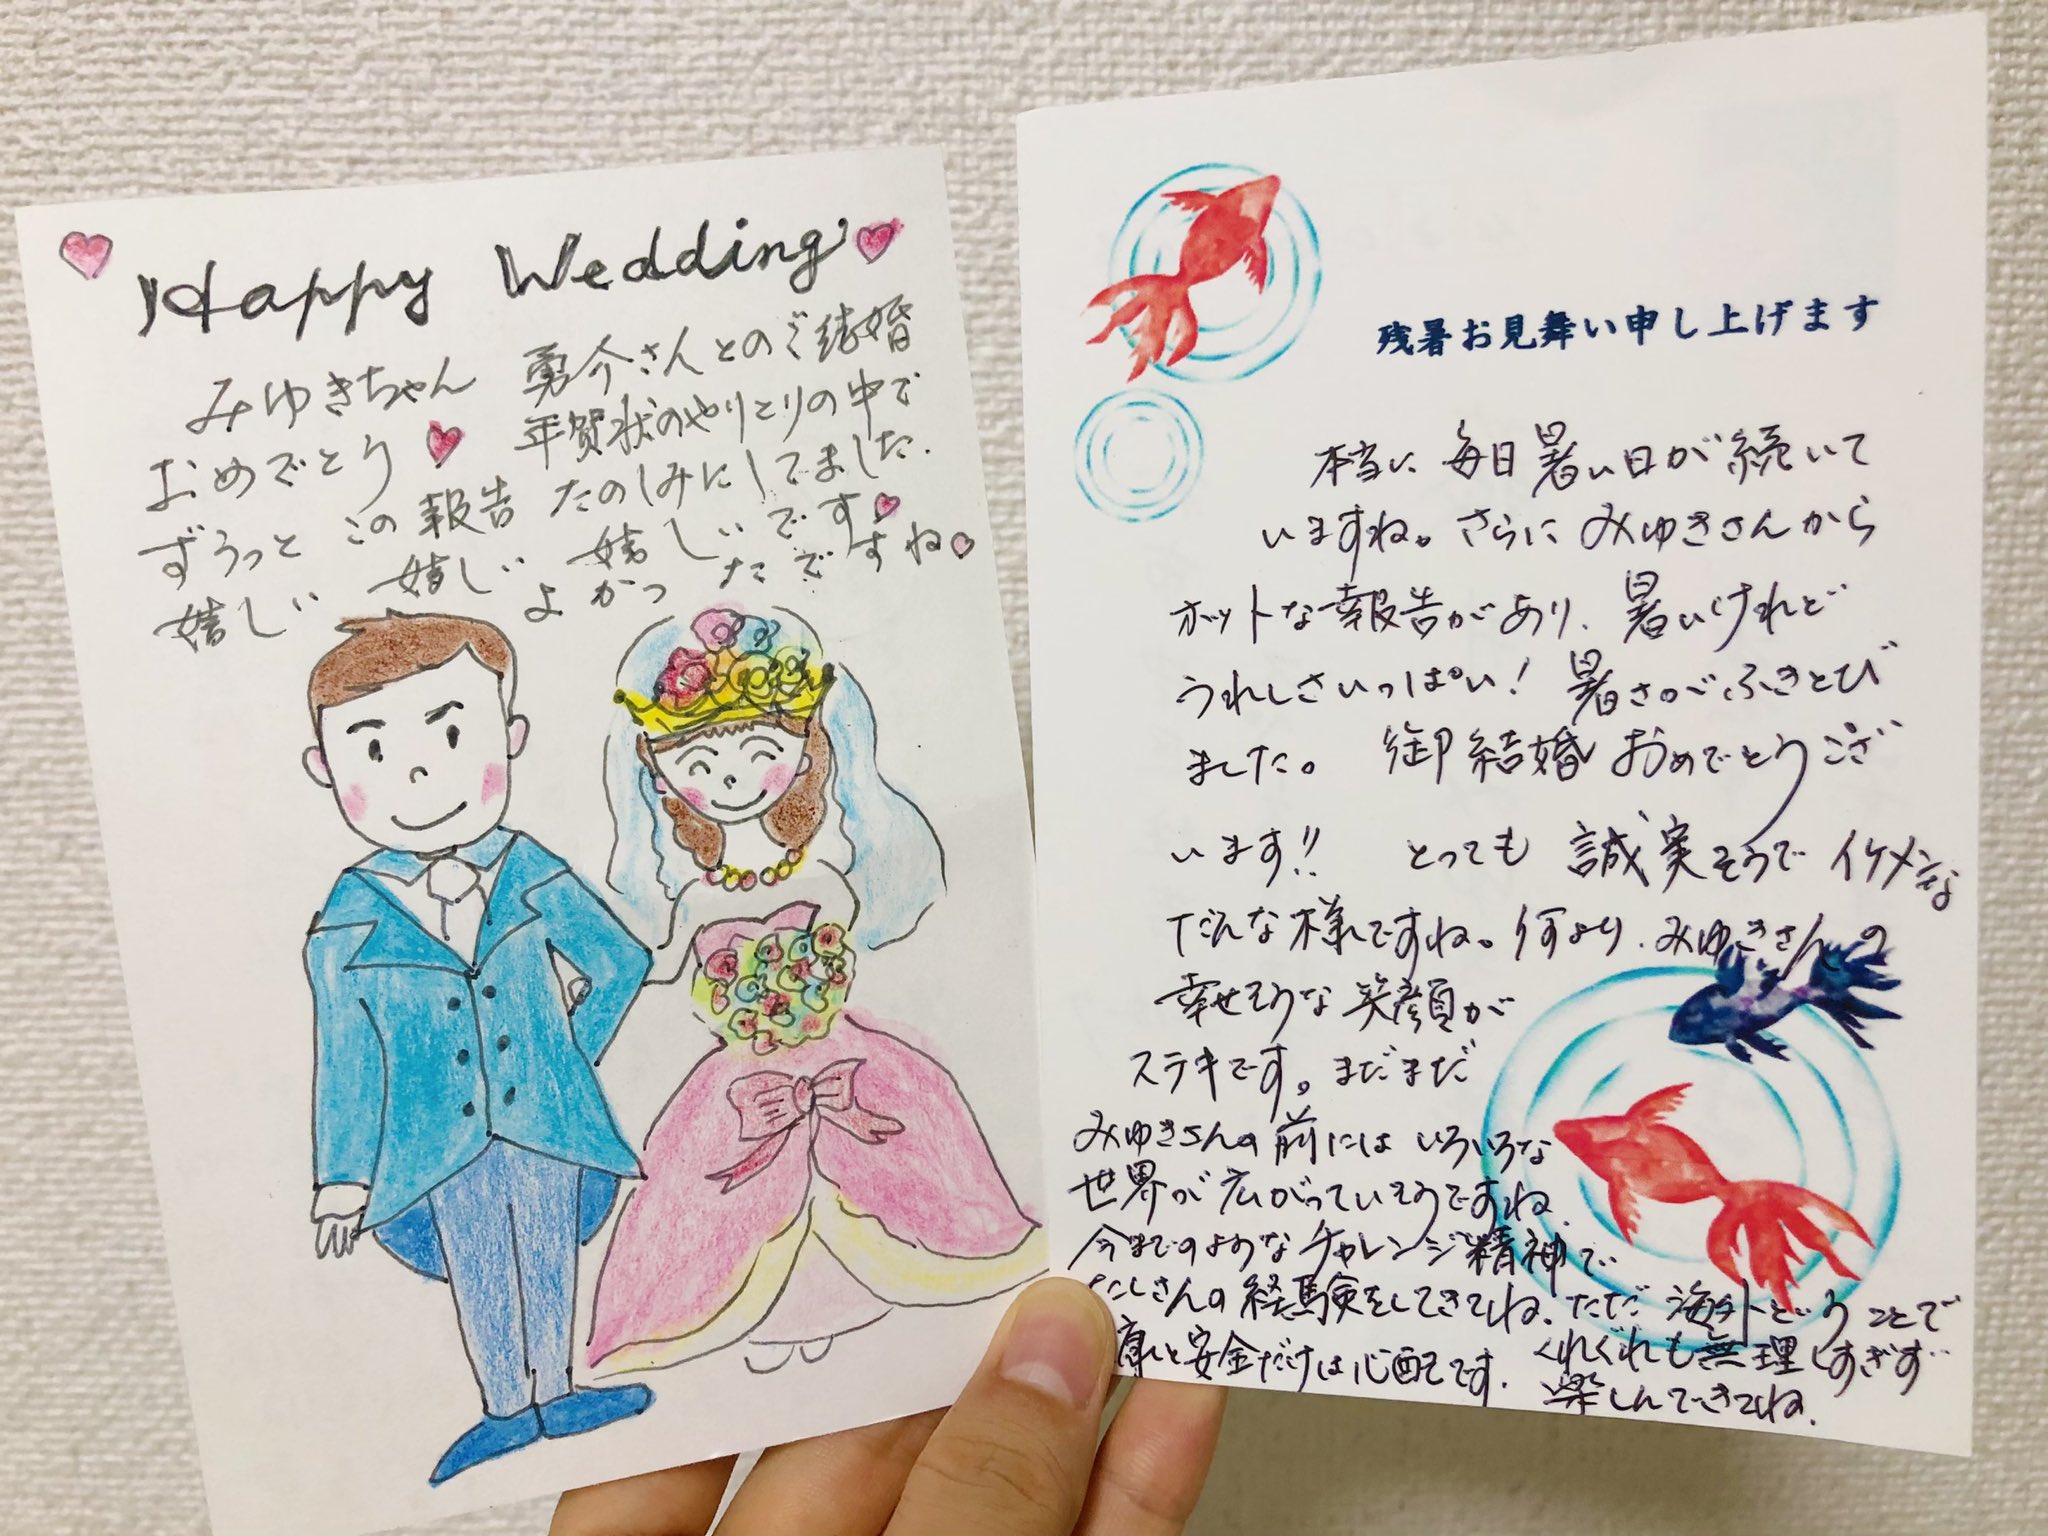 Happy Wedding
みゆきちゃん 勇介さんとのご結婚
おめでとう 年賀状のやりとりの中で
ずうっと この報告 たのしみにしてました.
嬉しい 嬉しい 嬉しいです
よかったですね
残暑お見舞い申し上げます
本当に 毎日暑い日が続いて
いますね。さらに みゆきさんから
ホットな報告があり、暑いけれど
うれしさいっぱい! 暑さがふきとび
ました。 御結婚おめでとうござ
います!! とっても 誠実そうで イケメンな
だんな様ですね。何より、みゆきさんの
幸せそうな 笑顔が
ステキです。まだまだ
みゆきさんの前には いろいろな
世界が広がっていそうですね.
今までのようなチャレンジ精神で
たくさんの経験をしてきてね. ただ 海外ということで
康と安全だけは心配です. くれぐれも無理しすぎず
楽しんできてね.